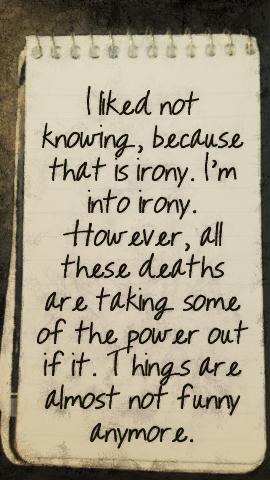 I liked not
knowing, because
that is irony. I'm
into irony.
However, all
these deaths
are taking some
of the power out
if it. Things are
almost not funny
anymore.